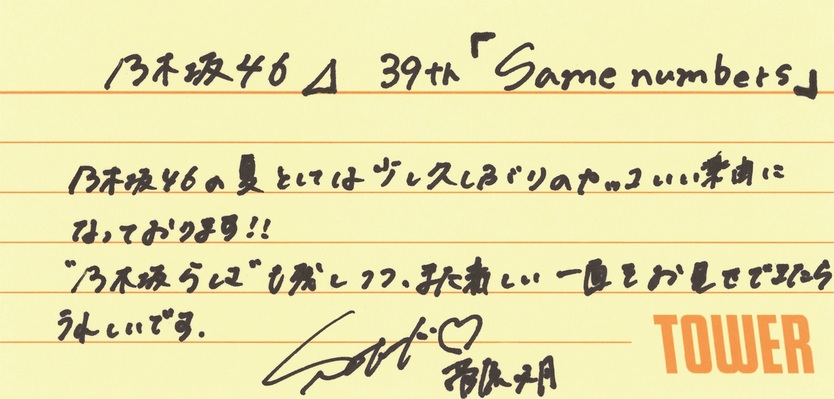 乃木坂46 ⊿ 39th「Same numbers」
乃木坂46の夏としては少し久しぶりのかっこいい楽曲に
なっております!!
"乃木坂らしさ"も残しつつ、また新しい一面をお見せできたら
うれしいです。
TOWER
菅原咲月